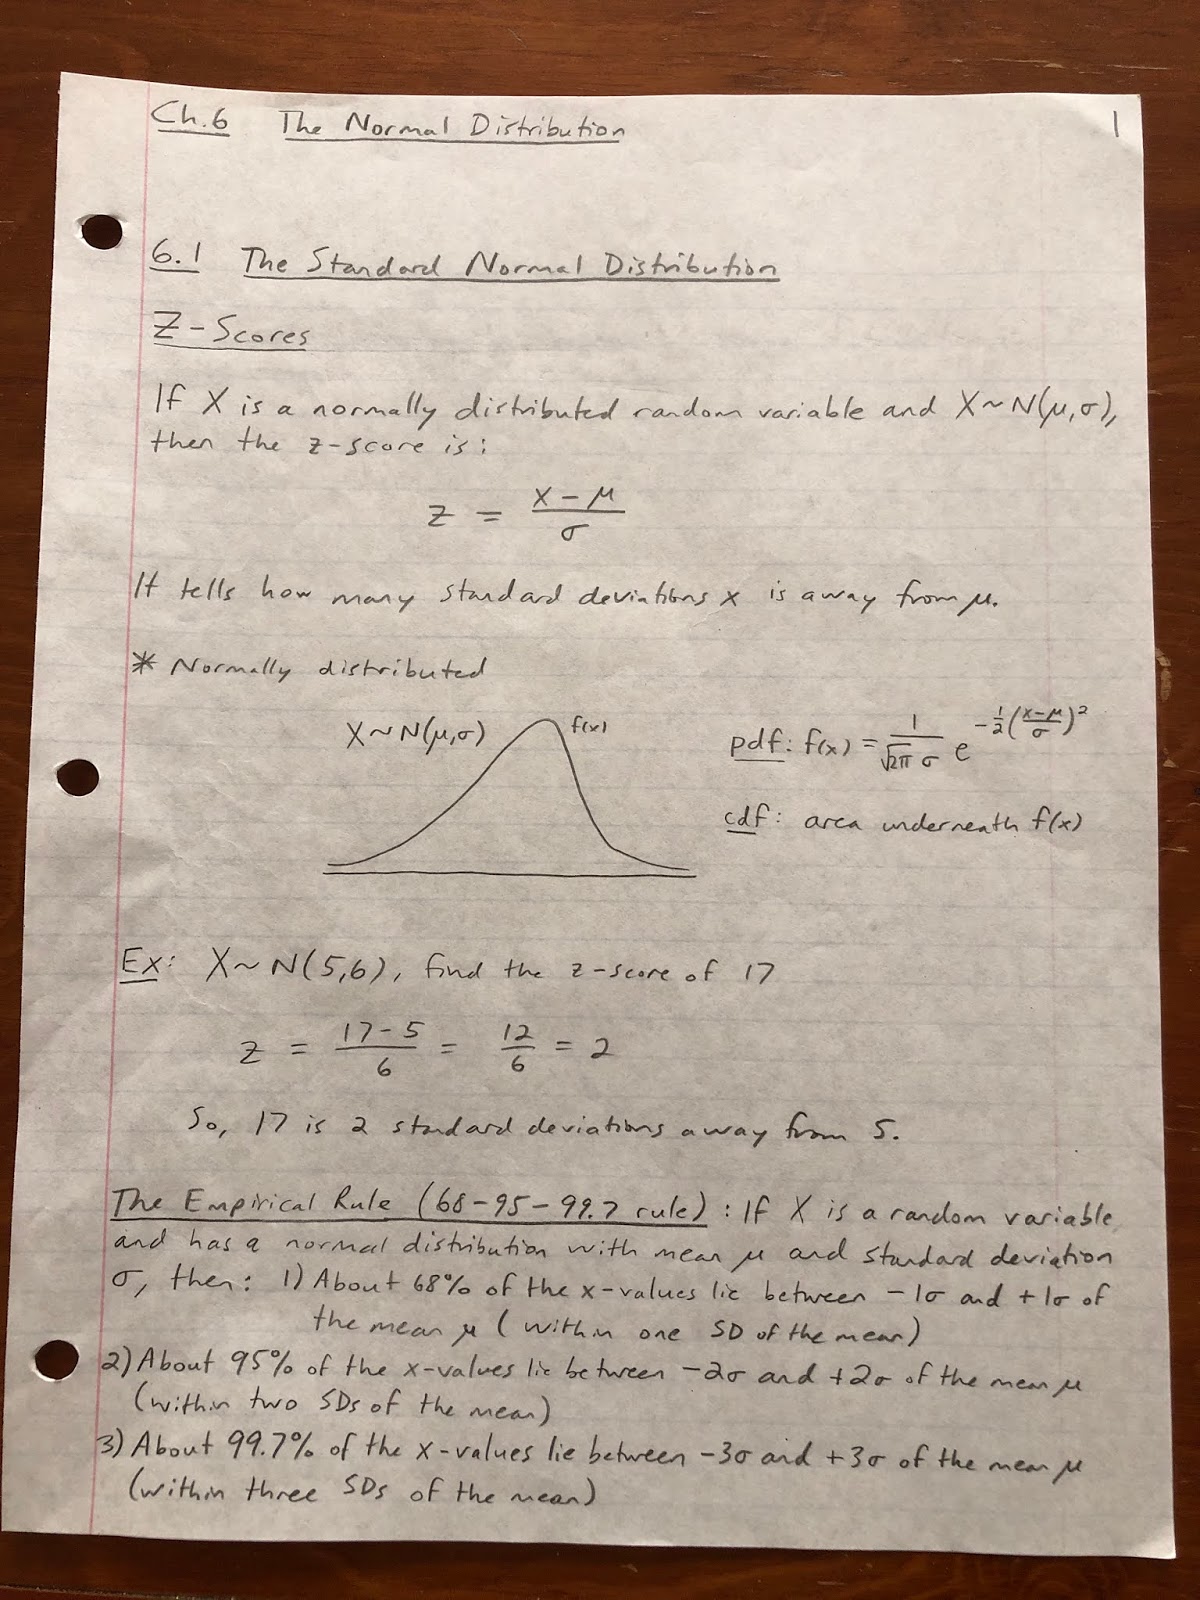 Ch.6 The Normal Distribution
1
6.1 The Standard Normal Distribution
Z-Scores
If X is a normally distributed random variable and X~N(μ,σ),
then the z-score is:
z = (x-μ)/σ
It tells how many standard deviations x is away from μ.
* Normally distributed
X~N(μ,σ) f(x)
pdf: f(x) = 1/(√2π σ) e^(-1/2((x-μ)/σ)²)
cdf: area underneath f(x)
Ex: X~N(5,6), find the z-score of 17
z = (17-5)/6 = 12/6 = 2
So, 17 is 2 standard deviations away from 5.
The Empirical Rule (68-95-99.7 rule): If X is a random variable
and has a normal distribution with mean μ and standard deviation
σ, then: 1) About 68% of the x-values lie between -1σ and +1σ of
the mean μ (within one SD of the mean)
2) About 95% of the x-values lie between -2σ and +2σ of the mean μ
(within two SDs of the mean)
3) About 99.7% of the x-values lie between -3σ and +3σ of the mean μ
(within three SDs of the mean)